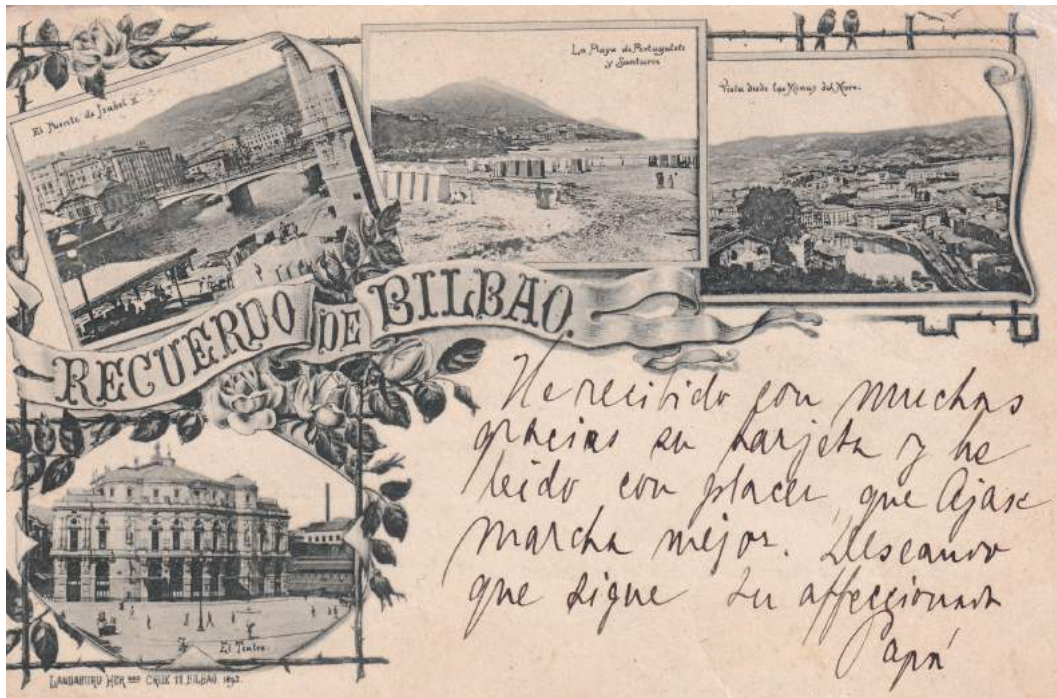 El Puente de Isabel II
La Playa de Portugalete
y Santurce
Vista desde las Minas del Moro.
RECUERDO DE BILBAO.
He recibido con muchas
gracias su tarjeta y he
leido con placer, que
marcha mejor. Deseando
que sigue su affeccionado
Papá
El Teatro.
LANDABURU HERnas CRUZ 11 BILBAO 1897